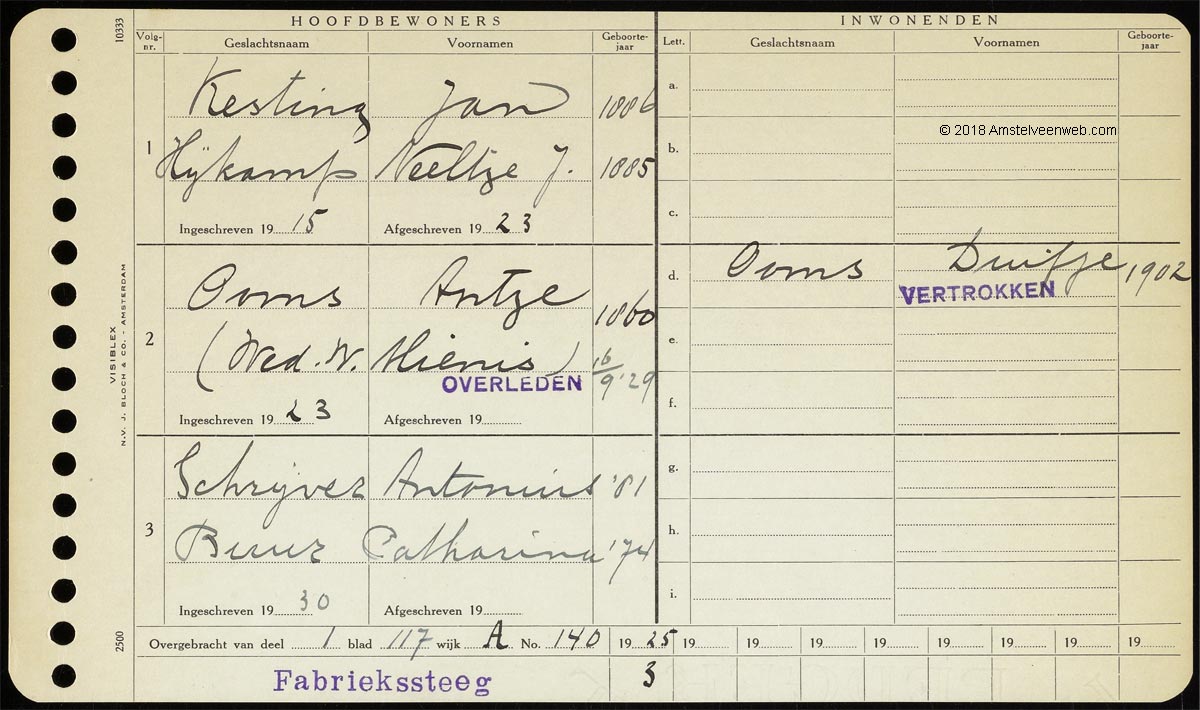 HOOFDBEWONERS
INWONENDEN
Volg-nr. Geslachtsnaam Voornamen Geboorte-jaar
Lett. Geslachtsnaam Voornamen Geboorte-jaar
10333
1
Kesting Jan 1886
Hÿkamp Neeltje J. 1885
Ingeschreven 19 15 Afgeschreven 19 23
a.
© 2018 Amstelveenweb.com
b.
c.
2
Ooms Antje 1860
(Wed. W. Mienis)
OVERLEDEN 16/9 '29
Ingeschreven 19 23 Afgeschreven 19
d. Ooms Duifje 1902
VERTROKKEN
e.
f.
VISIBLEX
N.V. J. BLOCH & CO. - AMSTERDAM
3
Schrijver Antonius '81
Buur Catharina '74
Ingeschreven 19 30 Afgeschreven 19
g.
h.
i.
2500
Overgebracht van deel 1 blad 117 wijk A No. 140 19 25 19 19 19 19 19 19 19 19
Fabriekssteeg 3